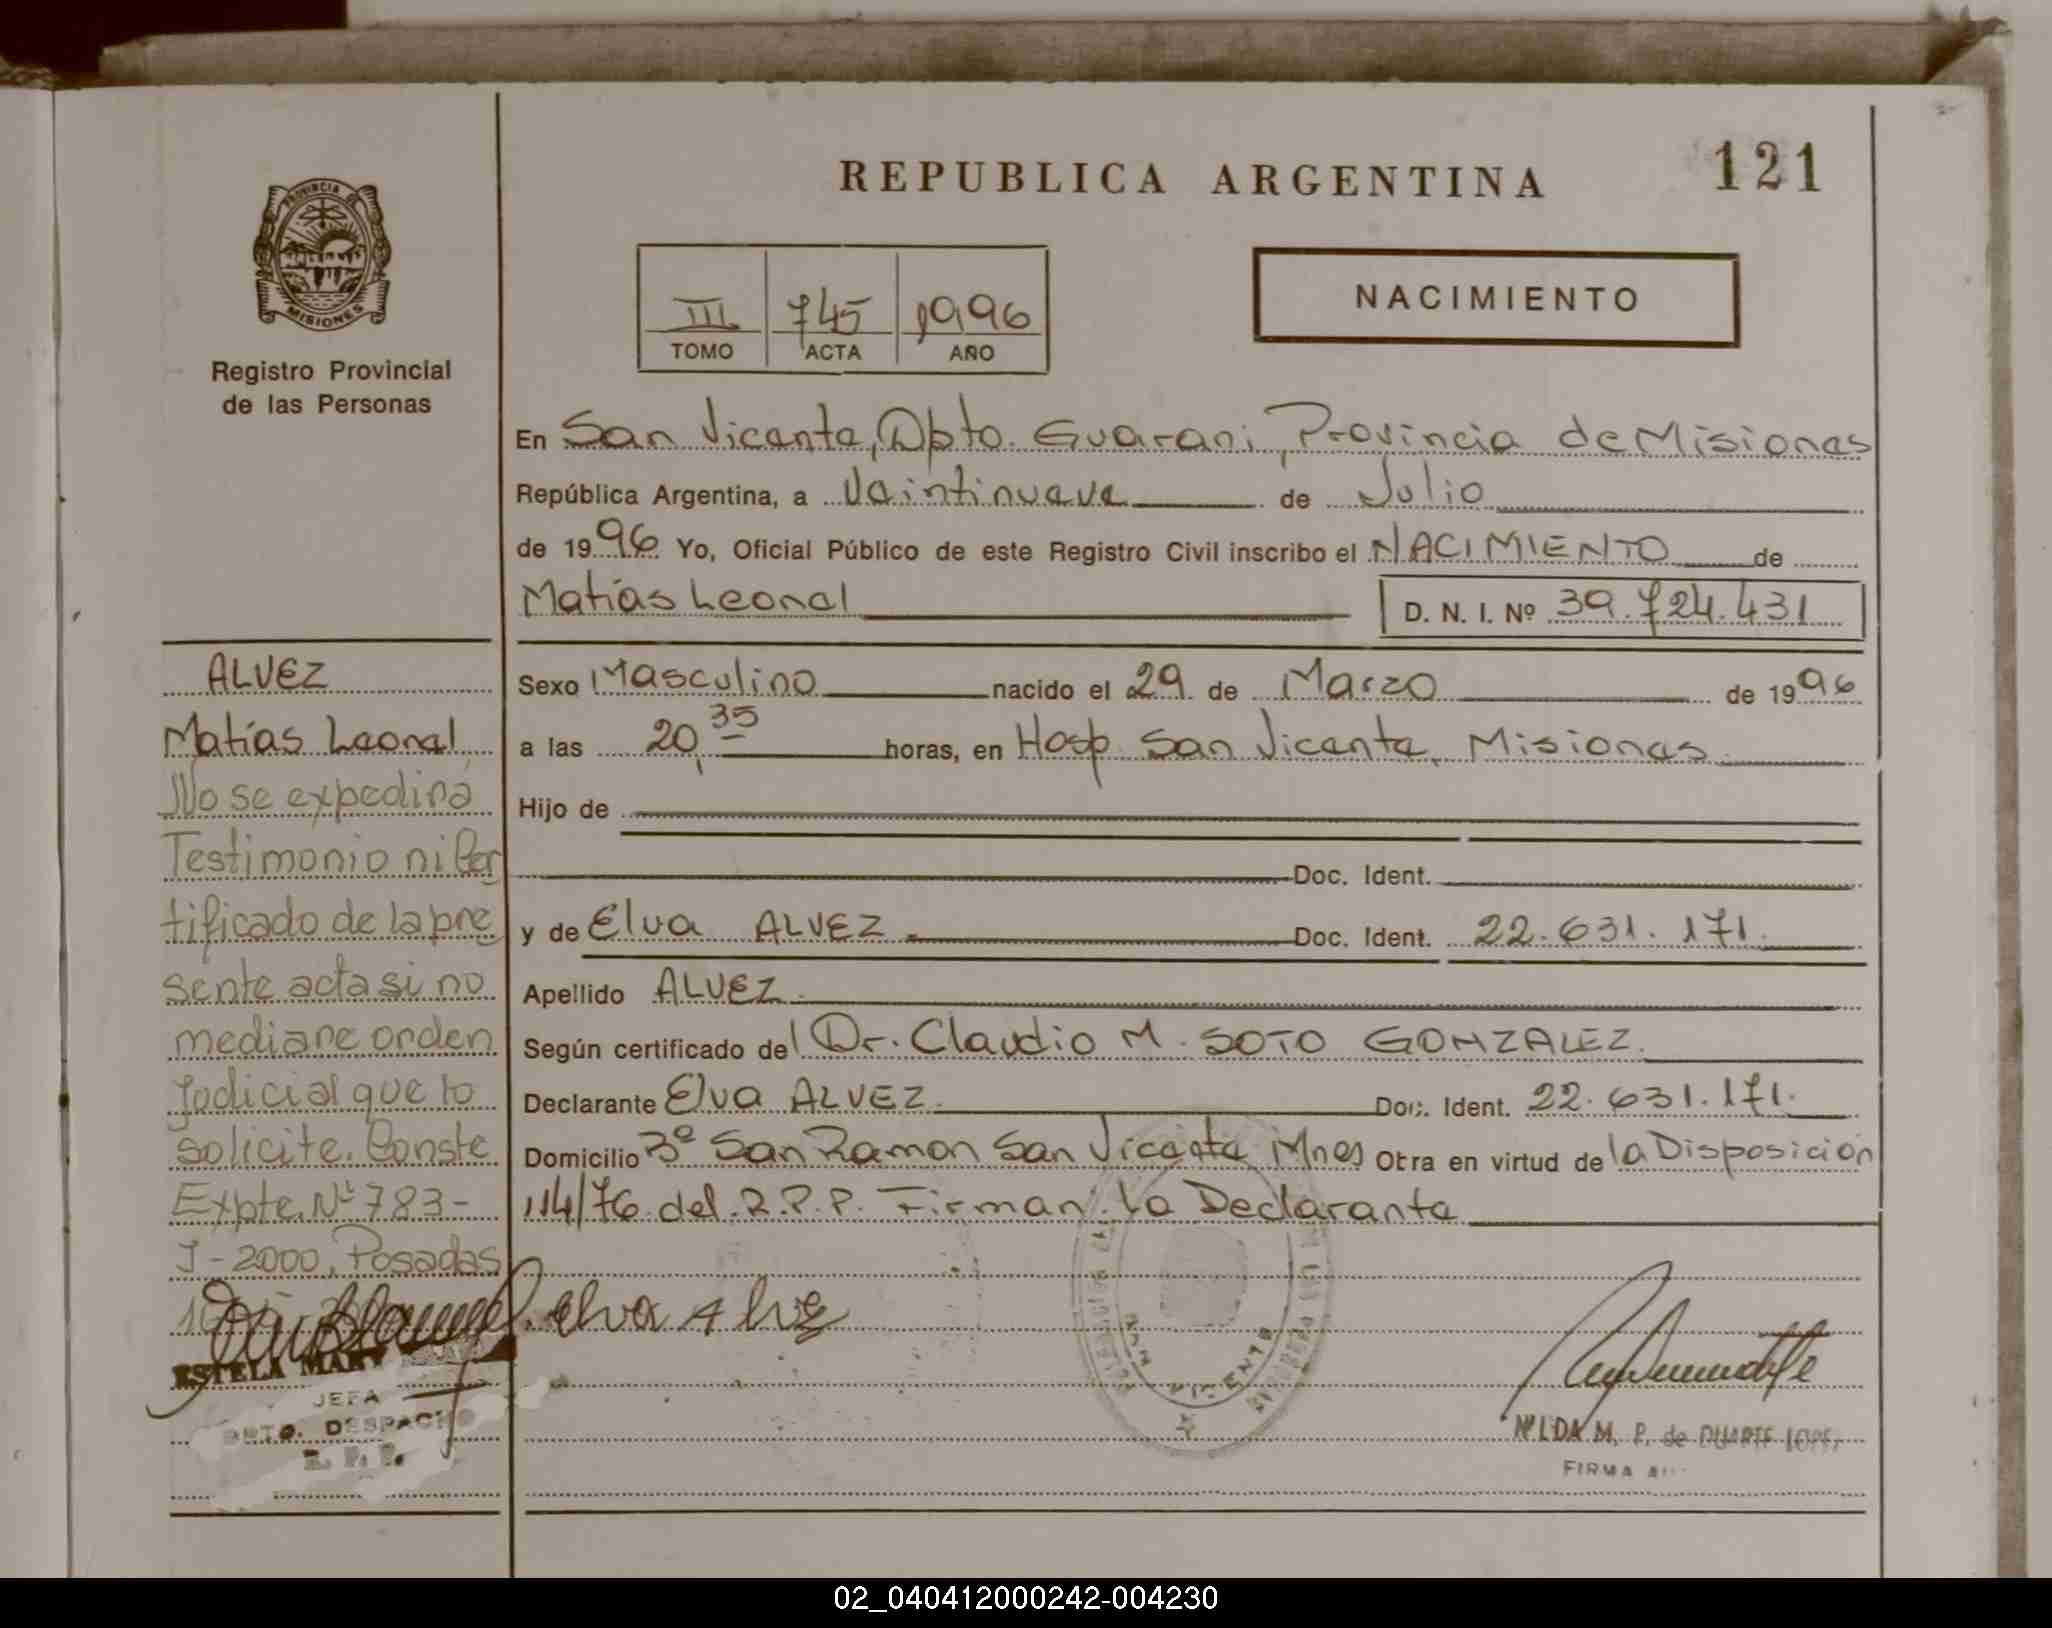 REPUBLICA ARGENTINA
121
PROVINCIA DE
MISIONES
Registro Provincial
de las Personas
III 745 1996
TOMO ACTA AÑO
NACIMIENTO
En San Vicente, Dpto. Guarani, Provincia de Misiones
República Argentina, a Veintinueve de Julio
de 1996 Yo, Oficial Público de este Registro Civil inscribo el NACIMIENTO de
Matías Leonel D. N. I. Nº 39.724.431
Sexo Masculino nacido el 29 de Marzo de 1996
a las 20,35 horas, en Hosp. San Vicente, Misiones
Hijo de
Doc. Ident.
y de Elva ALVEZ Doc. Ident. 22.631.171.
Apellido ALVEZ
Según certificado del Dr. Claudio M. SOTO GONZALEZ.
Declarante Elva ALVEZ. Doc. Ident. 22.631.171.
Domicilio 3º San Ramon San Vicente Mnes Otra en virtud de la Disposición
114/76 del R.P.P. Firman: La Declarante
ALVEZ
Matías Leonel
No se expedirá
Testimonio ni Cer
tificado de la pre
sente acta si no
mediare orden
Judicial que lo
solicite. Conste
Expte. Nº 783-
J-2000, Posadas
ESTELA MARY
JEFA
DPTO. DESPACHO
elva Alvez
SAN VICENTE
NILDA M. P. de DUARTE LOPEZ
FIRMA
02_040412000242-004230